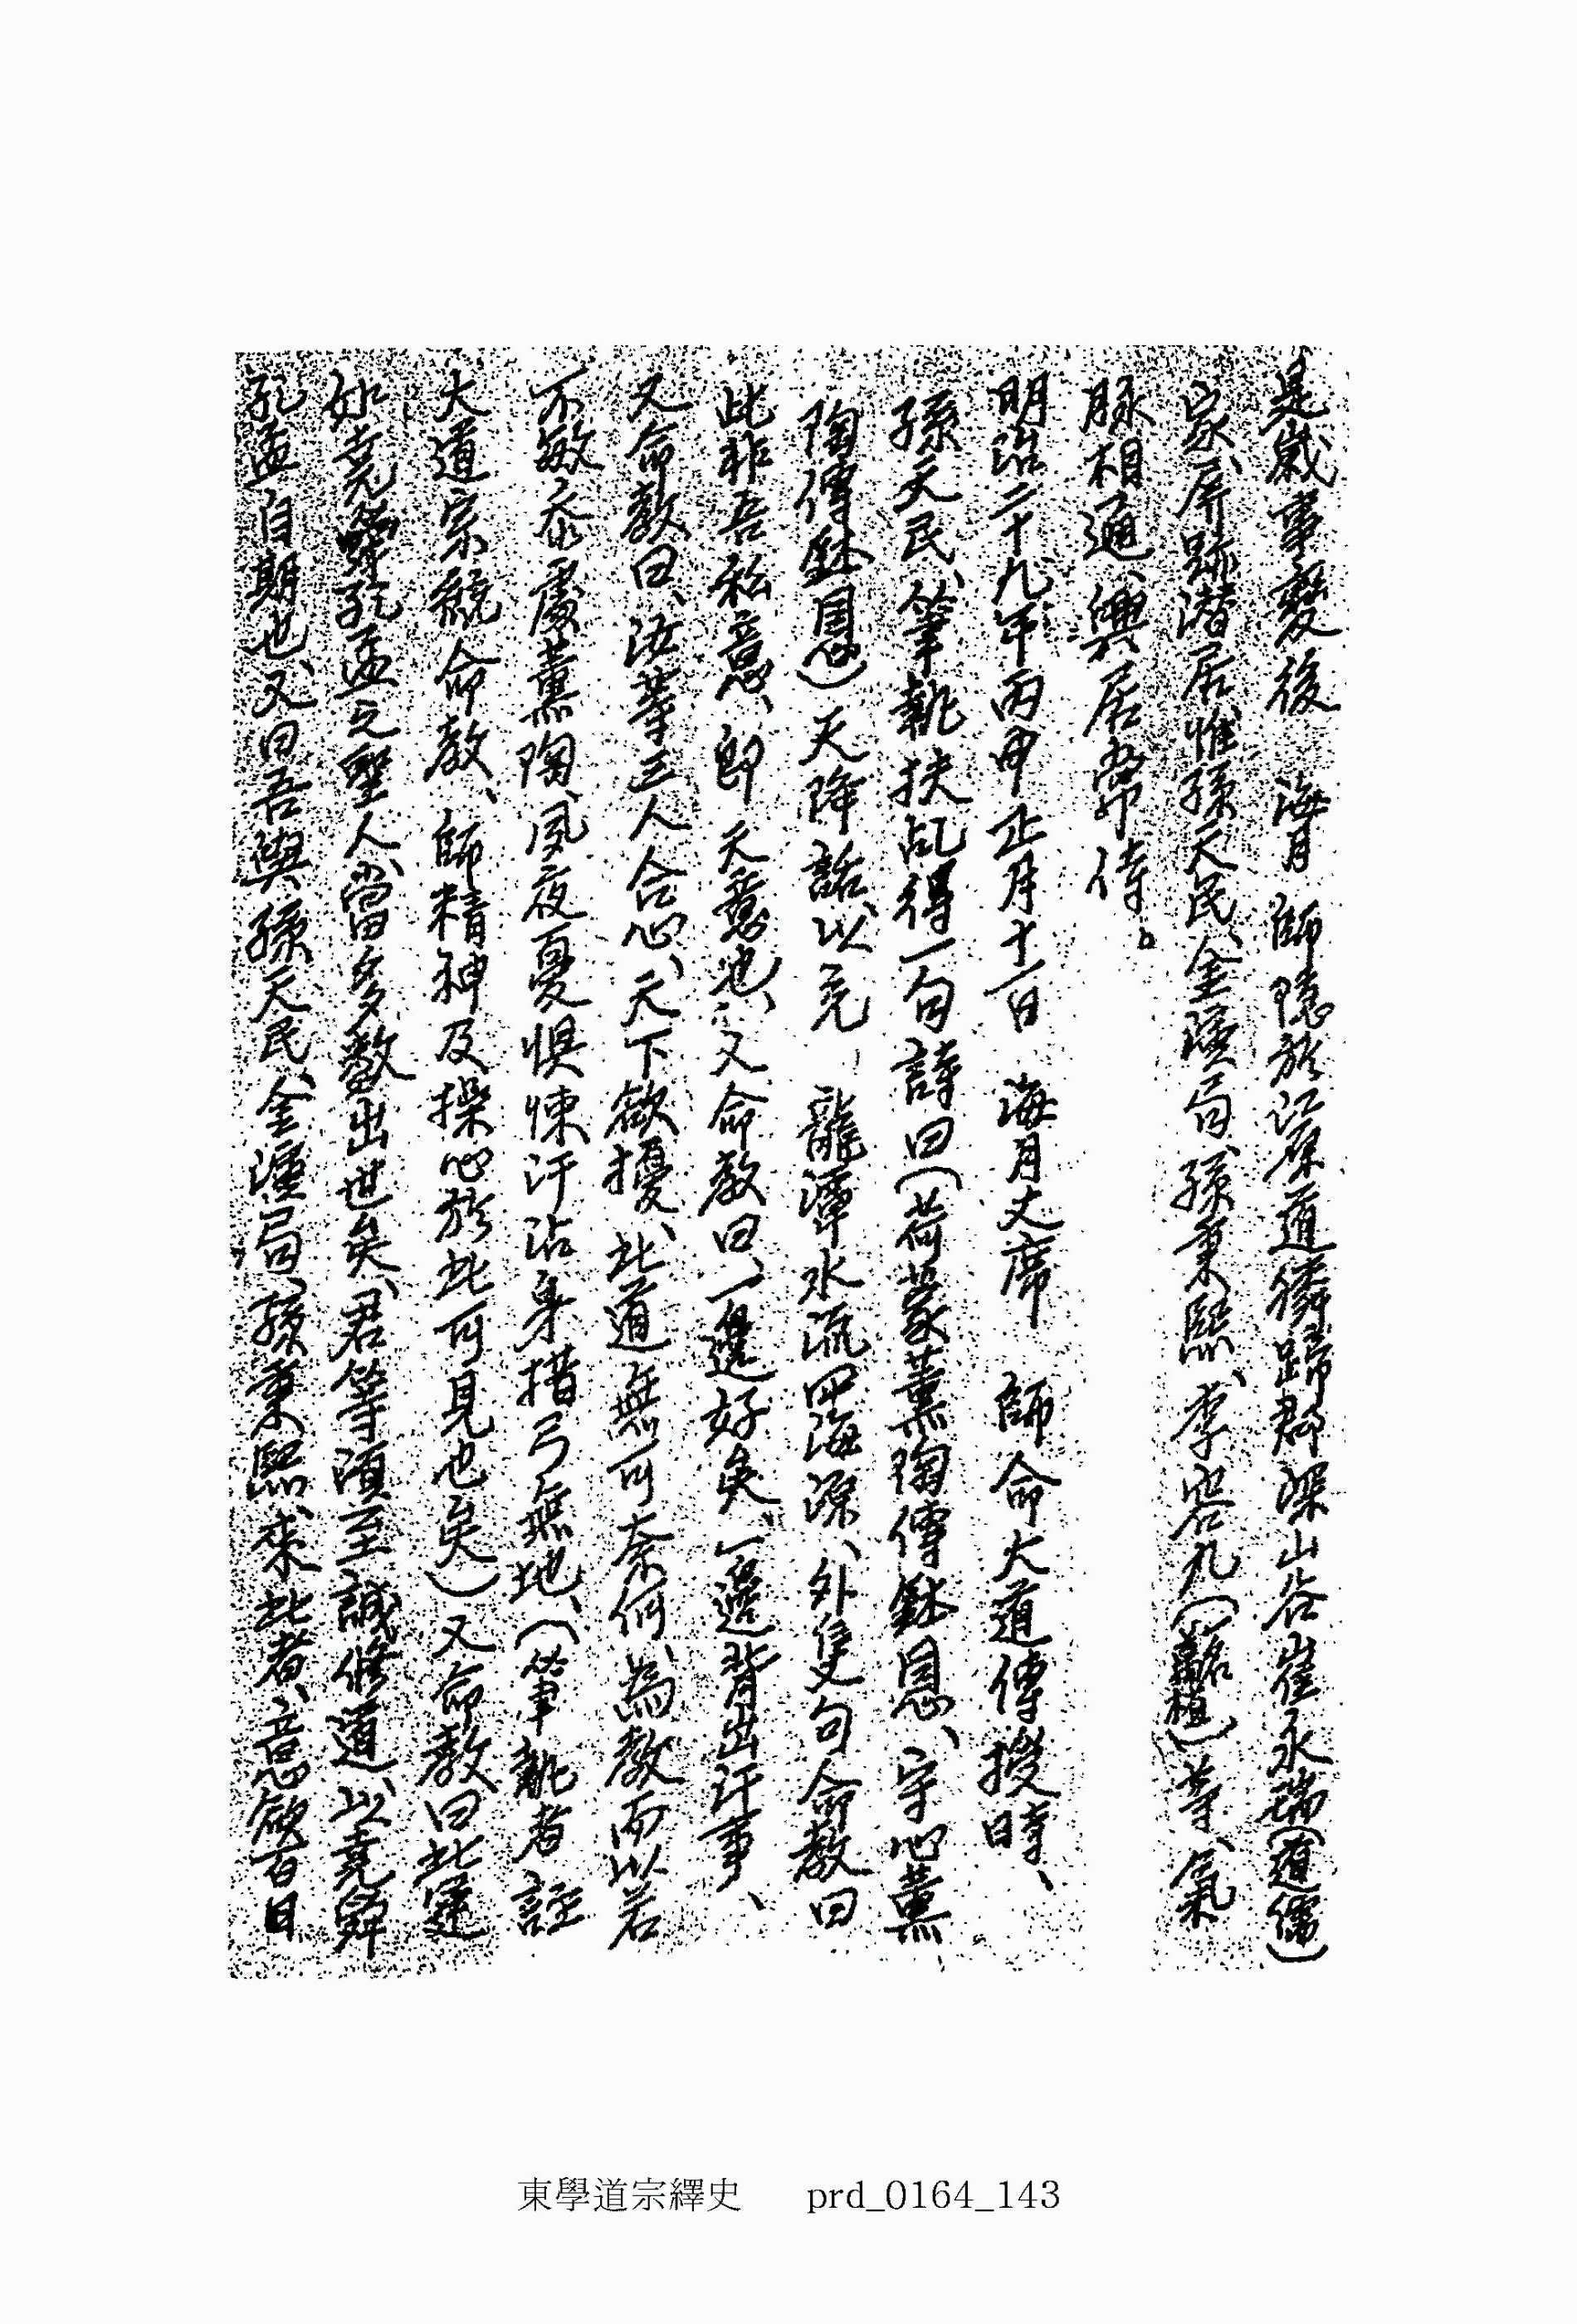 是歲事變後　海月　師隱於江原道獜蹄郡深山谷崔永瑞(道儒)
家、屛跡潛居、惟孫天民、金演局、孫秉熙、李容九(鳳植)等、氣
脉相通、興居常侍。
明治二十九年丙申正月十一日　海月丈席　師命大道傳授時、
孫天民、筆執扶乩得一句詩曰(荷蒙薰陶傳鉢恩、守心薰
陶傳鉢恩)天降詩以完　龍潭水流四海源、外隻句命教曰
此非吾私意、郎　天意也、又命教曰、一邊好矣、一邊背出訝事、
又命教曰、汝等三人合心、天下欲擾、此道無可奈何、爲教而以若
不敏忝處薰陶、夙夜憂惧悚汗沾身措躬無地、(筆執者註
大道宗統命教、師精神及操心於此可見也矣)又命教曰此運
如堯舜孔孟之聖人、當多數出世矣、君等須至誠修道、以堯舜
孔孟自期也、又曰吾與孫天民、金演局、孫秉熙、來此者、意欲百日
東學道宗繹史　prd_0164_143